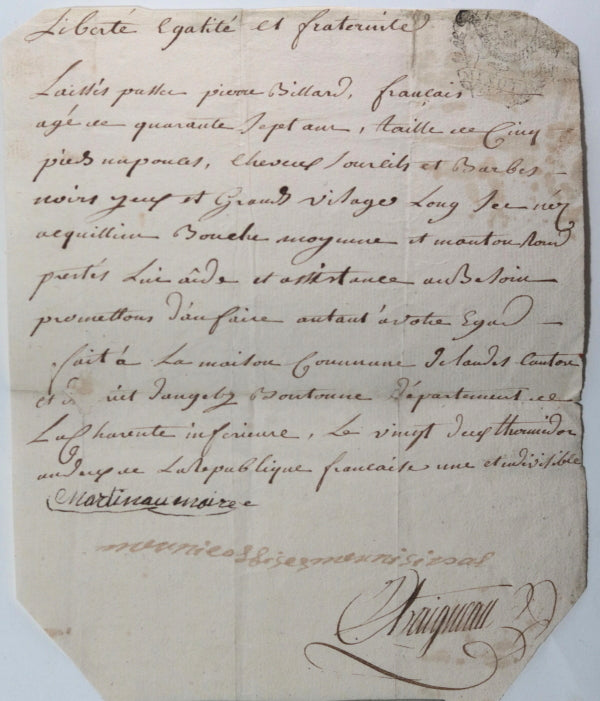 Liberté Egalité et fraternité
Laissés passer pierre Billard, français
agé de quarante Sept ans, taille de Cinq
pieds un pouces, cheveux Sourcils et Barbes
noirs yeux et Grands visage Long Sec néz
acquillien Bouche moyenne et manton Rond
prestés Lui aide et assistance au Besoin
promettons d'an faire autant a votre Egard
fait a La maison Commune de landes Canton
et d'angely Boutonne Département de
La Charente inferieure, Le vingt deux thermidor
an deux de La Republique française une et indivisible
Martinau maire